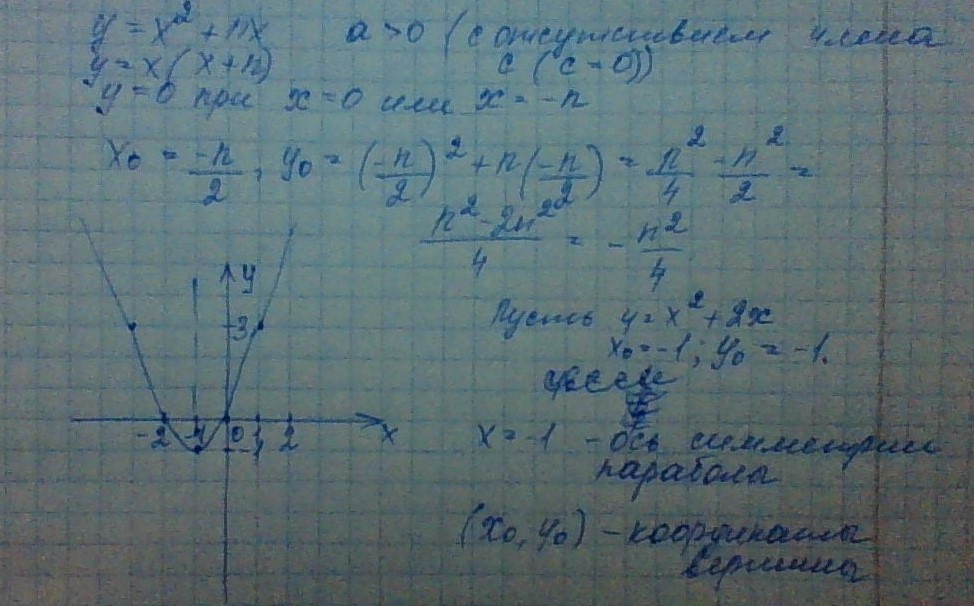 y = x² + nx     a > 0 (с отсутствием члена
y = x(x+n)     c (c = 0))
y = 0 при x = 0 или x = -n
x₀ = -n/2, y₀ = (-n/2)² + n(-n/2) = n²/4 - n²/2 =
(n² - 2n²)/4 = -n²/4
Пусть y = x² + 2x
x₀ = -1; y₀ = -1.
x = -1 - ось симметрии
параболы
(x₀, y₀) - координаты
вершины
y
3
-2 -1 0 1 2 x
-1